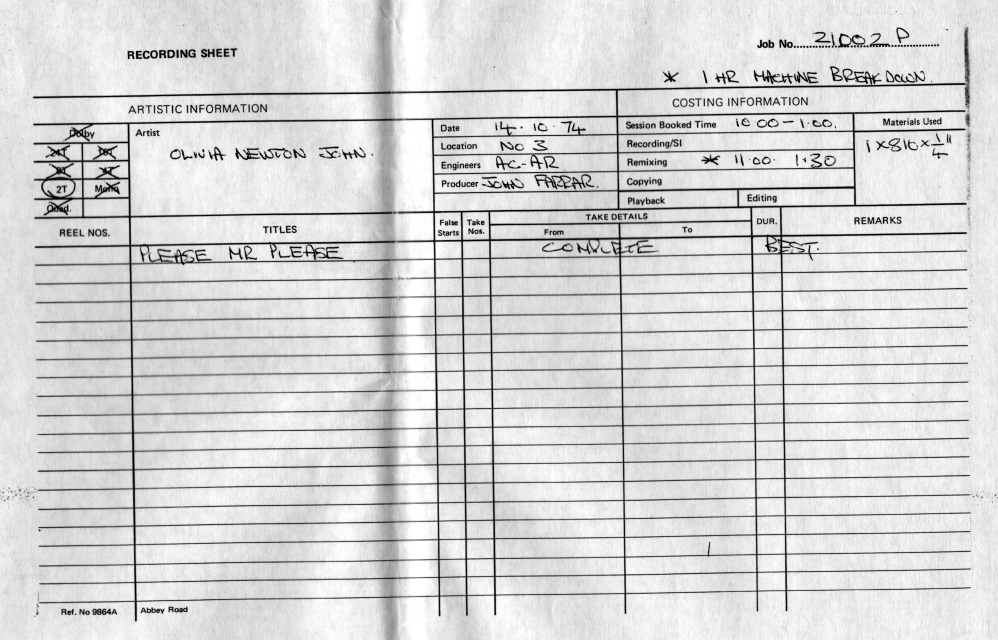 RECORDING SHEET
Job No. 21002 P
* 1 HR MACHINE BREAKDOWN.
ARTISTIC INFORMATION
COSTING INFORMATION
Dolby
24T 16T
8T 4T
2T Mono
Quad.
Artist
OLIVIA NEWTON JOHN.
Date 14.10.74
Location No 3
Engineers AC-AR
Producer JOHN FARRAR.
Session Booked Time 10.00-1.00.
Recording/SI
Remixing * 11.00. 1.30
Copying
Playback Editing
Materials Used
1x816x1/4"
REEL NOS. TITLES False Starts Take Nos. TAKE DETAILS From To DUR. REMARKS
PLEASE MR PLEASE COMPLETE BEST.
Ref. No 9864A Abbey Road